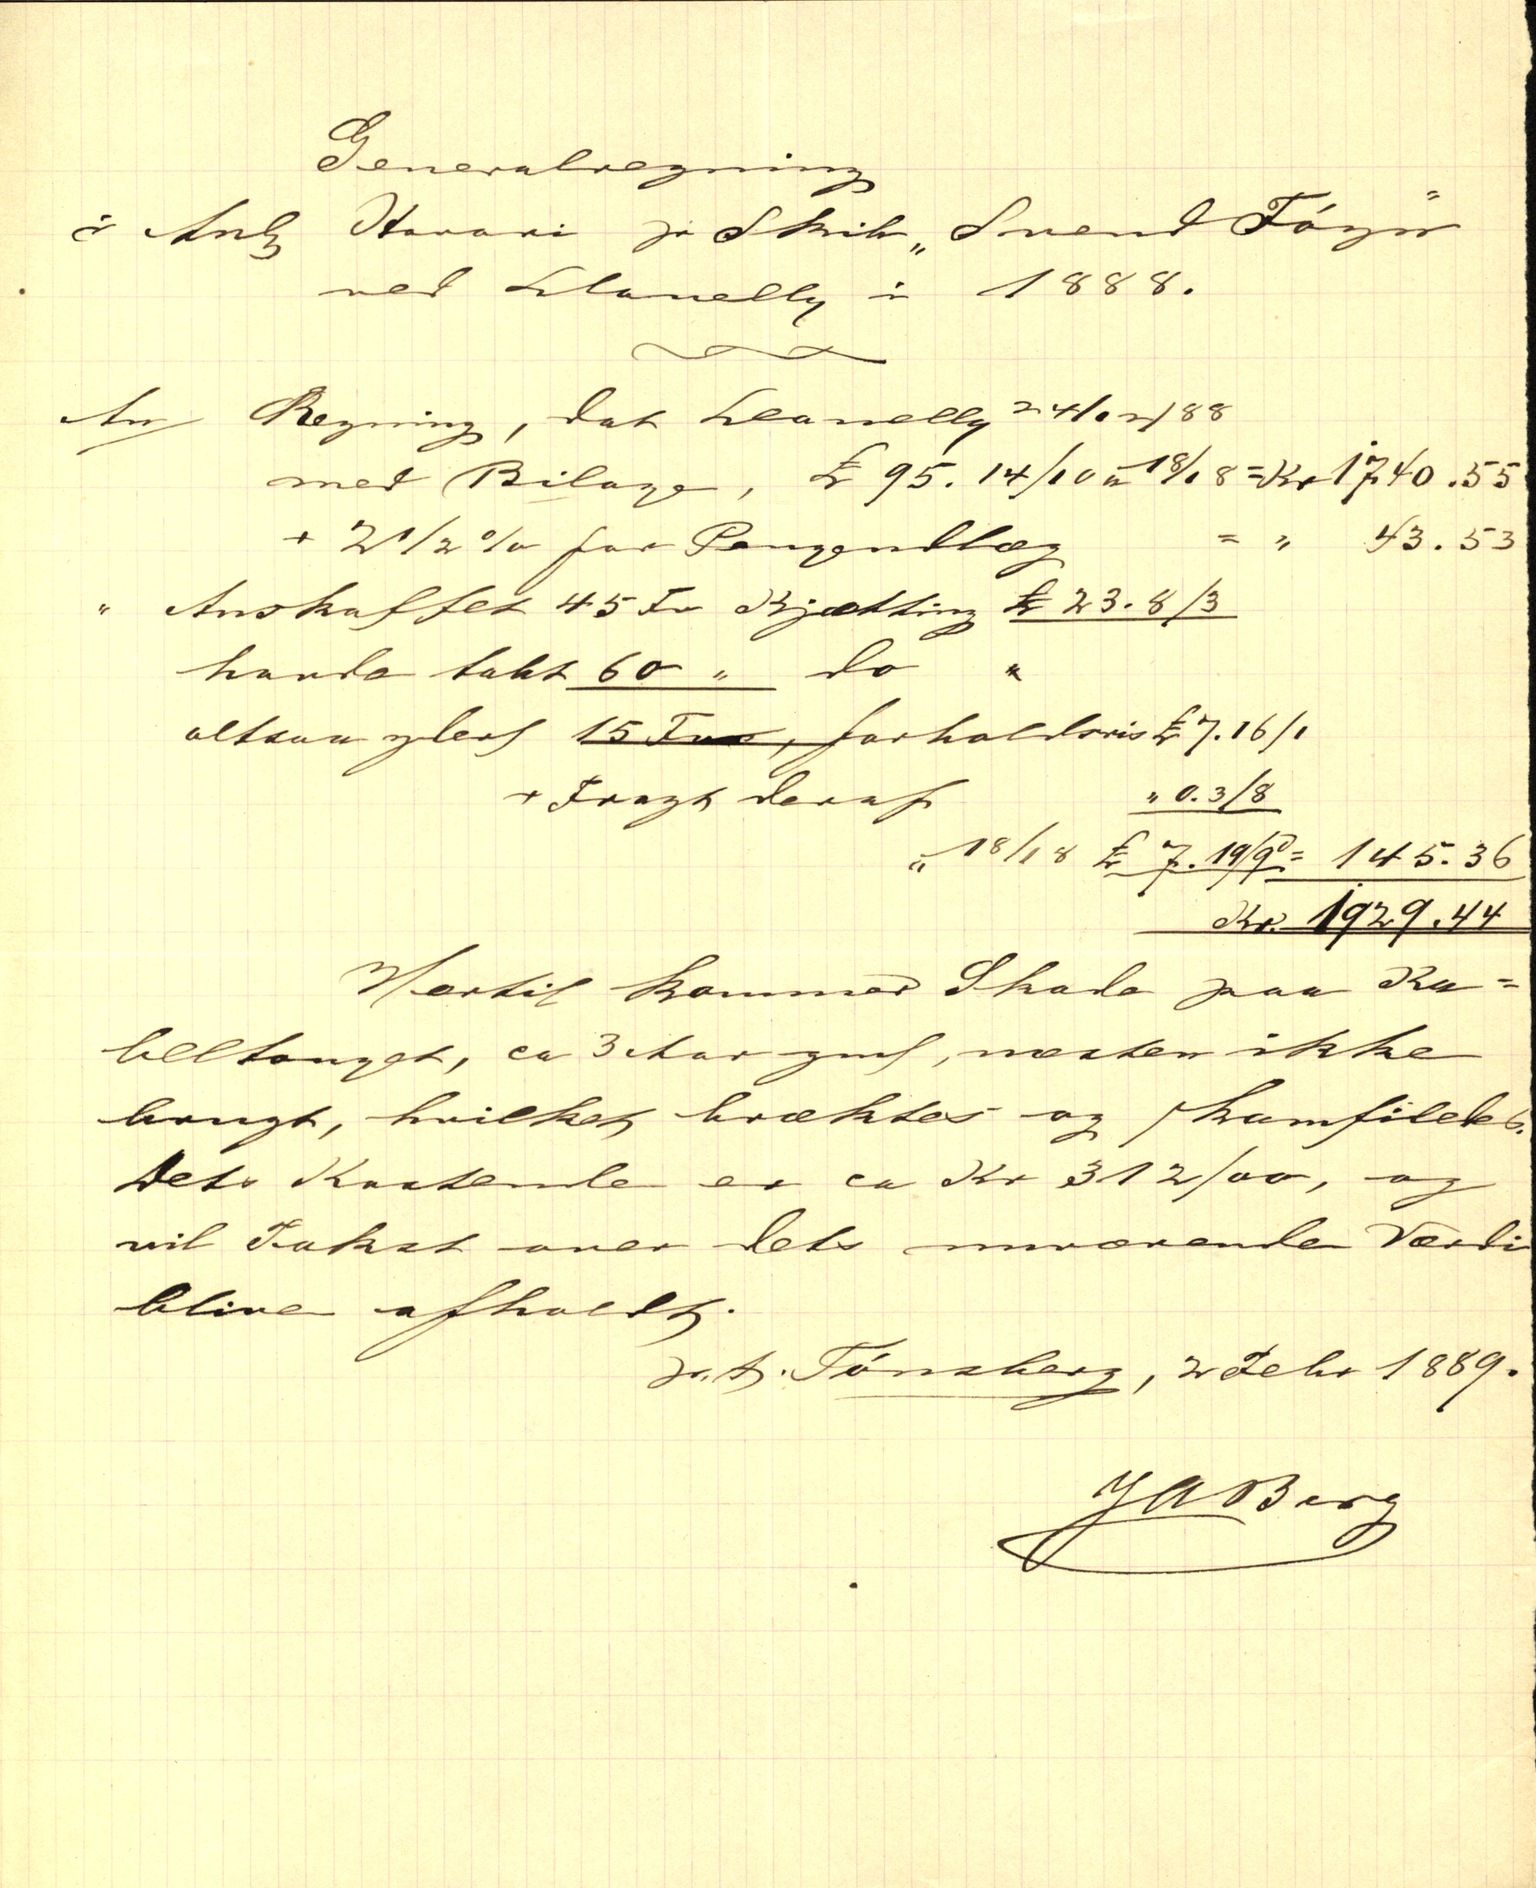 Generalregning
i Anlg Havari pr Skib „Svend Föyn"
ved Llanelly i 1888.
An Regning, dat Llanelly 24/12/88
med Bilage, £ 95.14/10 a 18/18 = Kr 1740.55
+ 2 1/2 % for Pengeudlæg = „ 43.53
" Anskaffet 45 Fv Kjætting £ 23.8/3
havde tabt 60 " do "
altsaa yderl 15 Fv, forholdsvis £ 7.16/1
+ Fragt deraf " 0.3/8
a 18/18 £ 7.19/9 = 145.36
Kr. 1929.44
Hertil kommer Skade paa Ka=
beltouget, ca 3 Aar gml, næsten ikke
brugt, hvilket brækkes og skamfiledes.
Dets Kostende er ca Kr 312/00, og
vil Takst over dets nuværende Værdi
blive afholdt.
p.t. Tönsberg, 2 Febr 1889.
J A Berg